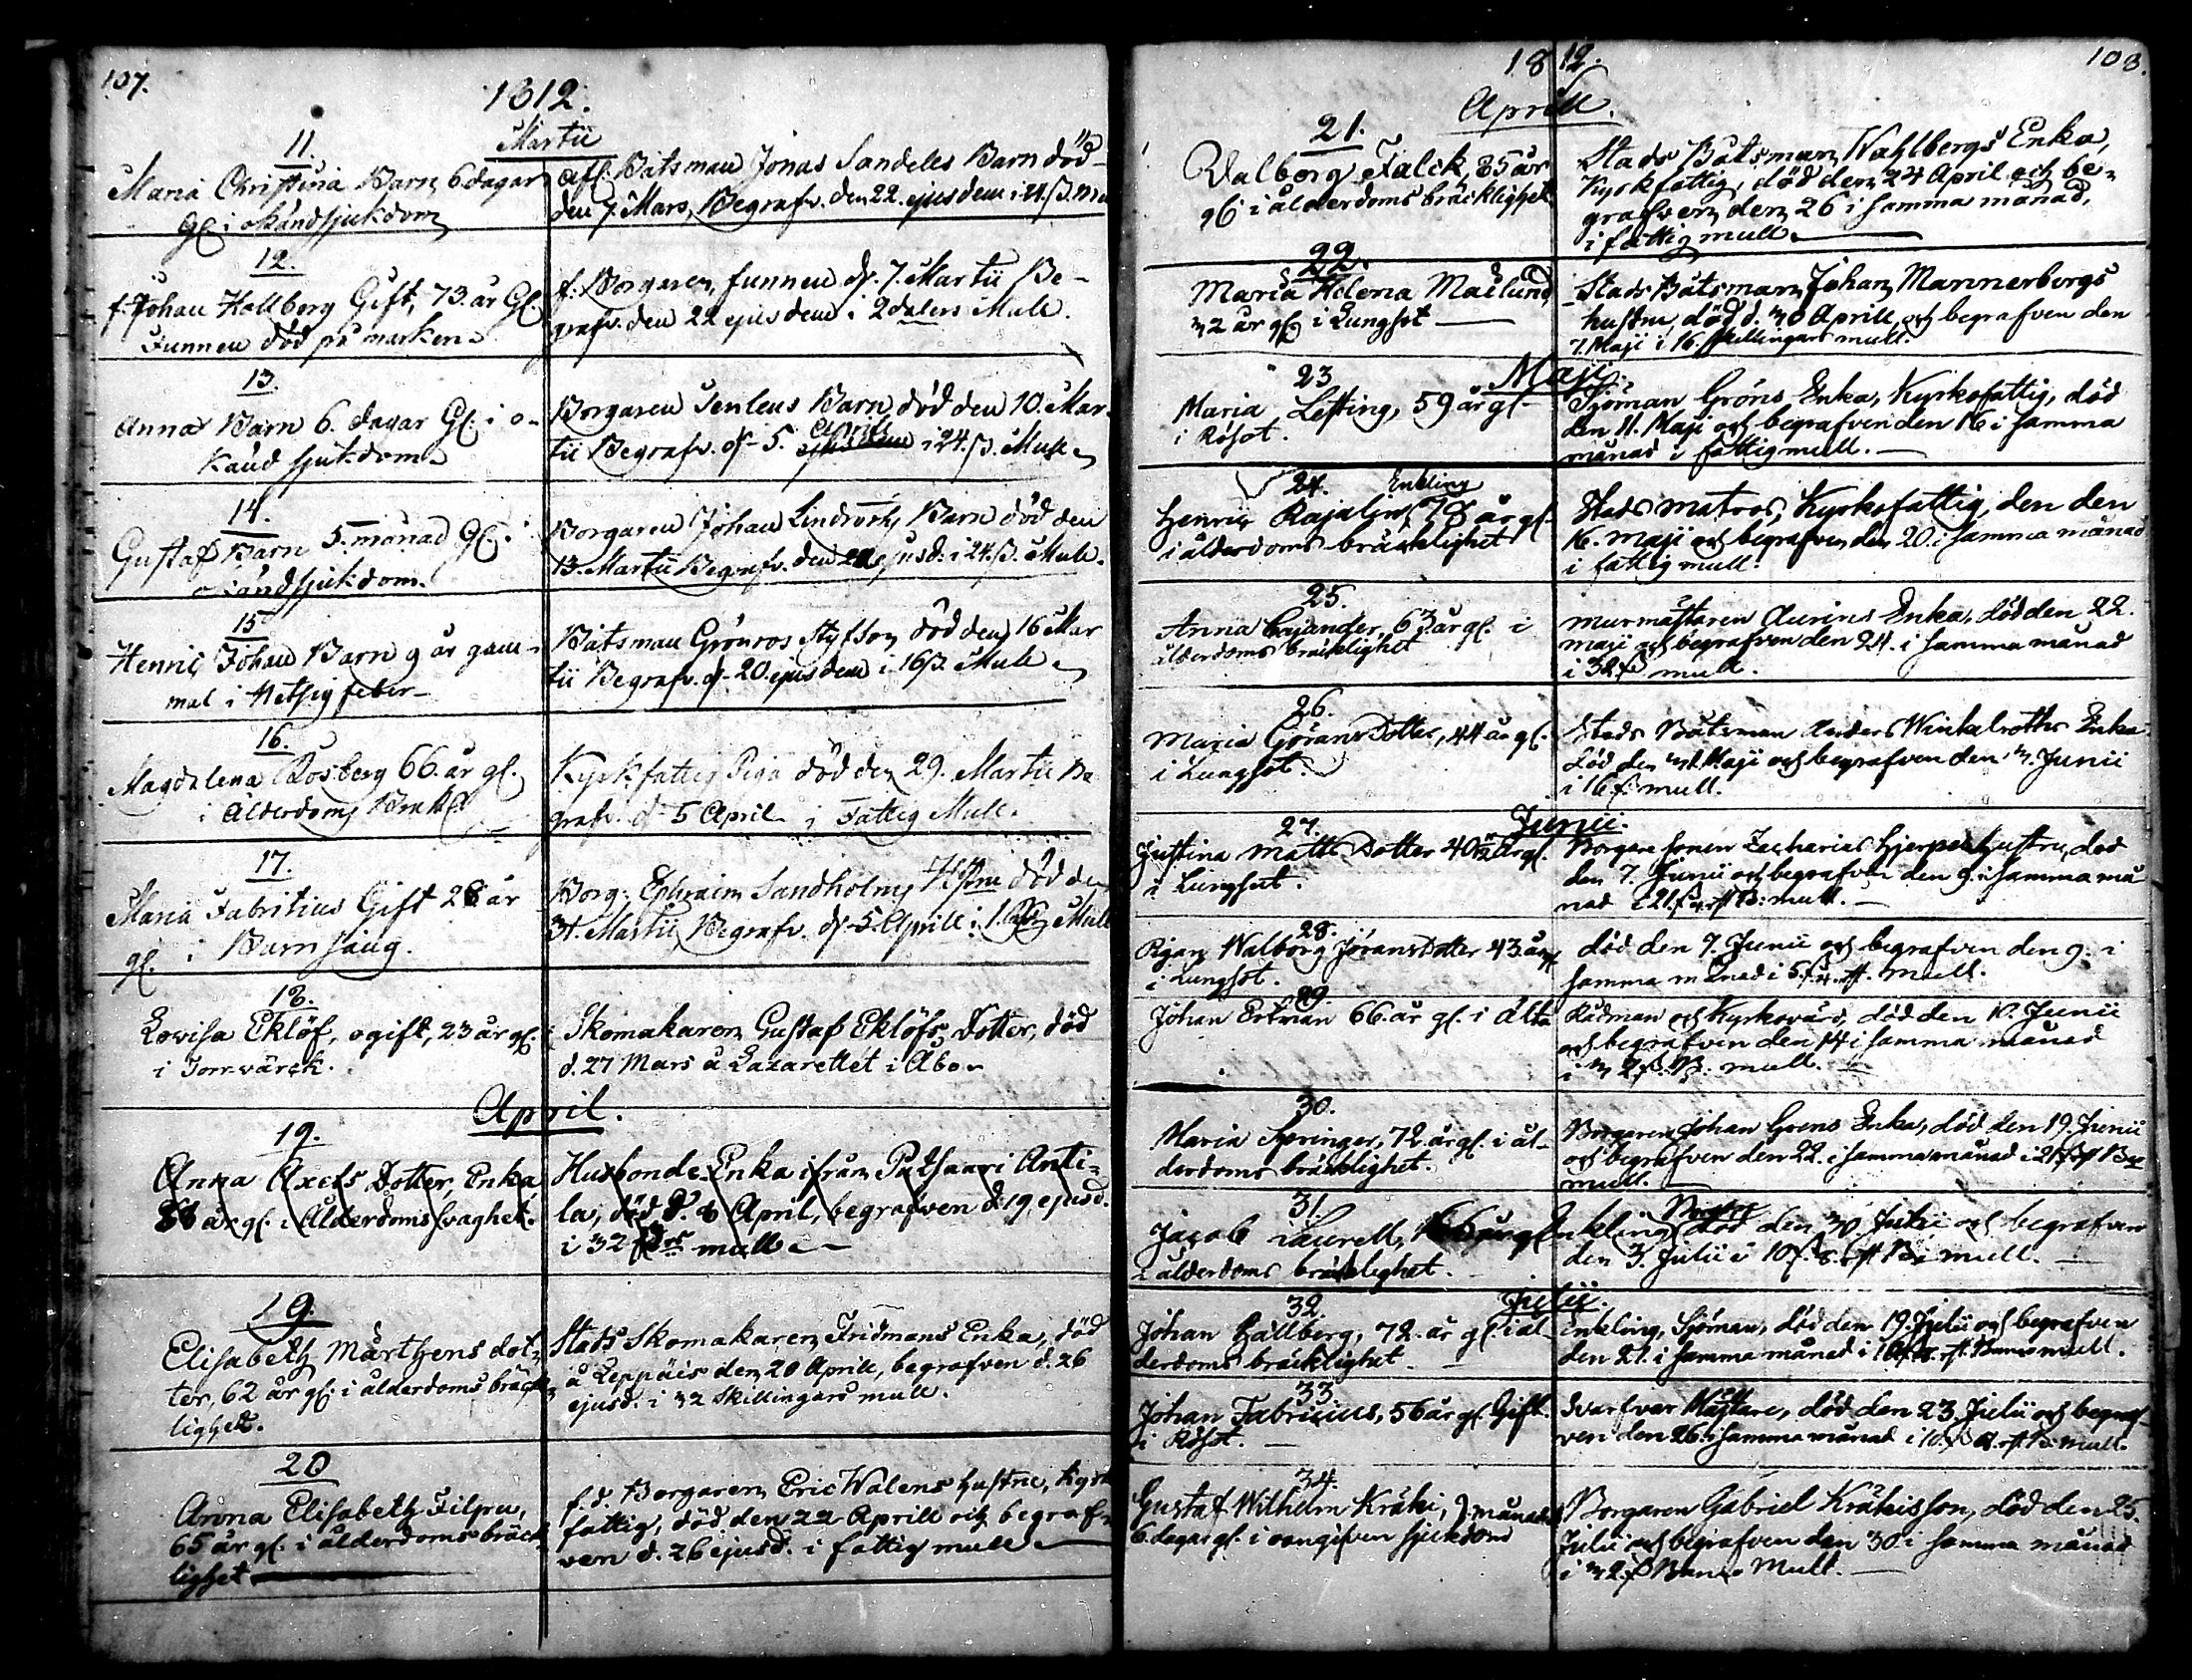 107.
1812.
Martii
11.
Maria Christina Barn 6 dagar
gl. i okänd sjukdom
Afl. Båtsman Jonas Sandells Barn död
den 7. Mars, Begrafv. den 22. ejusdem i 24. ß. Mull
12.
f. Johan Hallberg Gift, 73. år Gl.
Funnen död på marken.
f. Borgaren, funnen d. 7. Martii Be-
grafv. den 22 ejusdem i 2 dalers Mull.
13.
Anna Barn 6. dagar Gl. i o-
känd sjukdom.
Borgaren Barn, död den 10. Mar-
tii Begrafv. d. 5. Aprill i 24. ß. Mull.
14.
Gustaf Barn 5. månad Gl. i
okänd sjukdom.
Borgaren Johan Lindroths Barn död den
13. Martii Begrafv. den ejusd. i 24. ß. Mull.
15
Henric Johan Barn 9 år gam-
mal i Hetsig feber-
Båtsman Grönros Styfson död den 16 Mar
tii Begrafv. d. 20. ejusdem i 16 ß. Mull.
16.
Magdalena Rosberg 66. år gl.
i Ålderdoms
Kyrkfattig Piga död den 29. Martii Be
grafv. d. 5 April i Fattig Mull.
17.
Maria Fabritius Gift 28 år
gl. i Barnsäng.
Borg. Ephraim Sandholms Hustru död den
31. Martii Begrafv. d. 5. Aprill i 1. Mull
18.
Lovisa Eklöf, ogift, 23 år gl.
i Torrvärck.
Skomakaren Gustaf Eklöfs Dotter, död
d. 27 Mars å Lazarettet i Åbo.
April.
19.
Anna Axels Dotter, Enka
år gl. i Ålderdoms svaghet.
Husbonde Enka ifrån Anti-
la, död d. 8 April, begrafven d. 19 ejusd.
i 32 mull.
19.
Elisabeth Mårthens dot-
ter, 62 år gl. i ålderdoms bräck-
lighet.
Stads Skomakaren Fridmans Enka, död
å Leppäis den 20 Aprill, begrafven d. 26
ejusd. i 32 Skillingars mull.
20
Anna Elisabeth Filpu,
65 år gl. i ålderdoms bräck-
lighet
f. d. Borgaren Eric Walens hustru, kyrk
fattig, död den 22 Aprill och begraf-
ven d. 26 ejusd. i fattig mull
1812.
108.
Aprill.
21.
Valborg Falck, 85 år
gl. i ålderdoms bräcklighet
Stads Båtsman Wahlbergs Enka,
Kyrkfattig, död den 24 April och be-
grafven den 26 i samma månad,
i fattig mull.
22.
Maria Helena Maelund,
32 år gl. i Lungsot
Stads Båtsman Johan Mannerbergs
hustru, död d. 30 Aprill, och begrafven den
7. Maji i 16. skillingars mull.
Maji.
23
Maria Lefting, 59 år gl.
i Rösot.
Sjöman Gröns Enka, Kyrkofattig, död
den 11. Maji och begrafven den 16 i samma
månad i fattig mull.
24. Enkling
Henric Rajalin 78 år gl.
i ålderdoms bräcklighet
Stads matros, Kyrkofattig, den den
16. maji och begrafven den 20. i samma månad
i fattig mull.
25.
Anna Cajander, 63 år gl. i
ålderdoms bräcklighet
murmästaren Aurins Enka, död den 22.
maji och begrafven den 24. i samma månad
i 32 ß mull.
26.
Maria Görans Dotter, 44 år gl.
i Lungsot.
Stads Båtsman Anders Winkelroths Enka
död den 31 Maji och begrafven den 3. Junii
i 16 ß. mull.
Junii.
27.
Justina Matts Dotter 40 år gl.
i Lungsot.
Borgare sonen Zacharias Hjerpes hustru, död
den 7. Junii och begrafven den 9. i samma må
nad i 21. mull.
28.
Pigan Walborg Jörans Dotter 43. år gl.
i Lungsot.
död den 7. Junii och begrafven den 9. i
samma månad i 5. mull.
29.
Johan Ertman 66. år gl. i
Rådman och Kyrkovärd, död den 10. Junii
och begrafven den 14 i samma månad
i 32 ß. B. mull.
30.
Maria Springer, 72 år gl. i ål-
derdoms bräcklighet.
Borgaren Johan Grens Enka, död den 19. Junii
och begrafven den 22. i samma månad i
mull.
31.
Jacob Laurell, år gl. Enkling
i ålderdoms bräcklighet.
död den 30. Junii och begrafven
den 3. Julii i 10 mull.
Julii.
32.
Johan Hällberg, 72. år gl. i ål-
derdoms bräcklighet.
Enkling, Sjöman, död den 19. Julii och begrafven
den 21. i samma månad i mull.
33
Johan Fabricius, 56 år gl. Gift
i Rösot.
Svarfvar Mästare, död den 23 Julii och begraf-
ven den 26. i samma månad i mull.
34.
Gustaf Wilhelm Kräki, månader
6. dagar gl. i oangifven sjukdom
Borgaren Gabriel Kräkis son, död den 25.
Julii och begrafven den 30. i samma månad
i 32 ß Banco Mull.